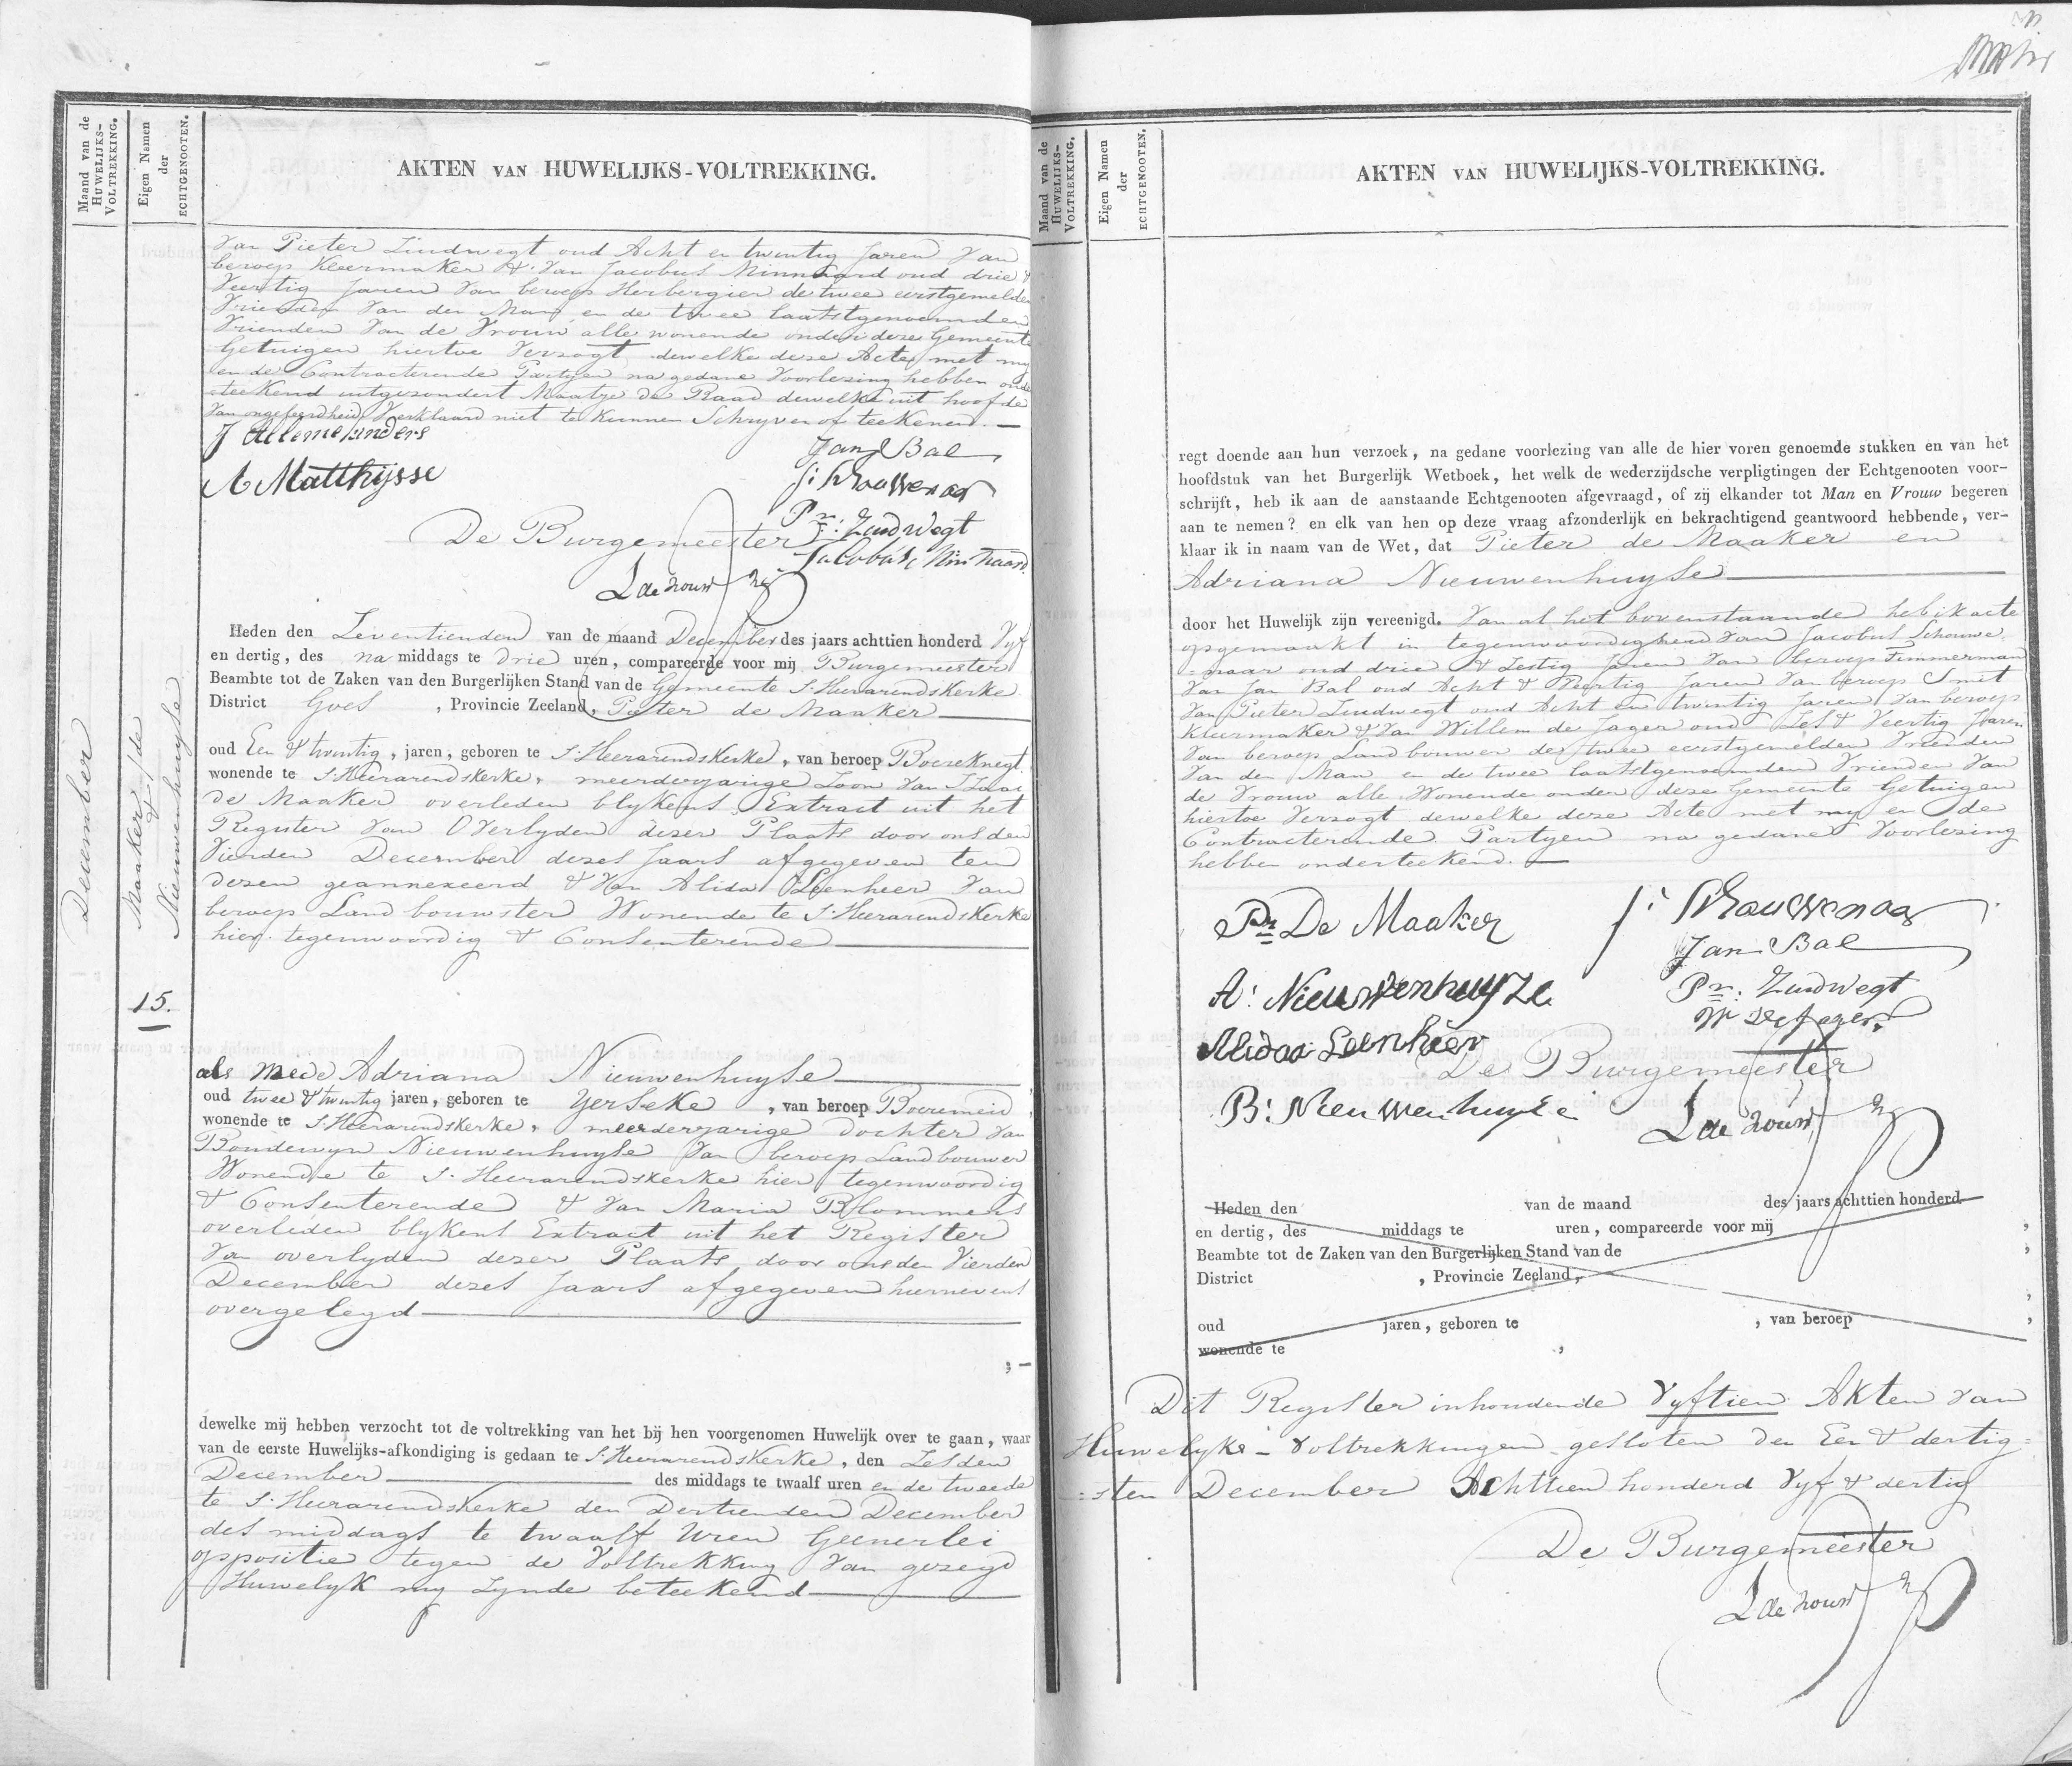 Maand van de
HUWELIJKS-
VOLTREKKING.
Eigen Namen
der
ECHTGENOOTEN.
AKTEN VAN HUWELIJKS-VOLTREKKING.
December
Maaker / de
&
Nieuwenhuyse
15.
Van Pieter Zuidwegt oud Acht en twintig Jaren Van
beroep Kleermaker & Van Jacobus Minnaard oud drie &
Veertig Jaren Van beroep Herbergier de twee eerstgemelde
Vrienden Van den Man en de twee laatstgenoemden
Vrienden Van de Vrouw alle wonende onder deze Gemeente
Getuigen hiertoe Verzogt dewelke deze Acte met my
en de Contracterende Partyen na gedane Voorlezing hebben onder
teekend uitgezondert Maatje de Raad dewelke uit hoofde
Van ongeleerdheid Verklaard niet te kunnen Schryven of teekenen.
A Matthijsse
Jan Bal
J: Schouwenaar
Pr: Zuidwegt
Jacobus Minnaard
De Burgemeester
Heden den Zeventienden van de maand December des jaars achttien honderd Vyf
en dertig, des na middags te drie uren, compareerde voor mij Burgemeester
Beambte tot de Zaken van den Burgerlijken Stand van de Gemeente S. Heerarendskerke
District Goes, Provincie Zeeland, Pieter de Maaker
oud Een & twintig, jaren, geboren te S. Heerarendskerke, van beroep Boereknegt
wonende te S. Heerarendskerke, meerderjarige Zoon Van Izaac
de Maaker overleden blykens Extract uit het
Register Van Overlyden dezer Plaats door ons den
Vierden December dezes Jaars afgegeven ten
dezen geannexeerd & Van Alida Leenheer Van
beroep Landbouwster Wonende te S. Heerarendskerke
hier tegenwoordig & Consenterende
als mede Adriana Nieuwenhuyse
oud twee & twintig jaren, geboren te Yerseke, van beroep Boeremeid
wonende te S. Heerarendskerke, meerderjarige Dochter Van
Boudewyn Nieuwenhuyse Van beroep Landbouwer
Wonende te S. Heerarendskerke hier tegenwoordig
& Consenterende & Van Maria Blommers
overleden blykens Extract uit het Register
Van overlyden dezer Plaats door ons den Vierden
December dezes Jaars afgegeven hiernevens
overgelegd
, –
dewelke mij hebben verzocht tot de voltrekking van het bij hen voorgenomen Huwelijk over te gaan, waar
van de eerste Huwelijks-afkondiging is gedaan te S. Heerarendskerke, den Zesden
December des middags te twaalf uren en de tweede
te S. Heerarendskerke den Dertienden December
des middags te twaalf Uren Geenerlei
oppositie tegen de Voltrekking Van gezegd
Huwelyk my Zynde beteekend
Maand van de
HUWELIJKS-
VOLTREKKING.
Eigen Namen
der
ECHTGENOOTEN.
AKTEN VAN HUWELIJKS-VOLTREKKING.
regt doende aan hun verzoek, na gedane voorlezing van alle de hier voren genoemde stukken en van het
hoofdstuk van het Burgerlijk Wetboek, het welk de wederzijdsche verpligtingen der Echtgenooten voor-
schrijft, heb ik aan de aanstaande Echtgenooten afgevraagd, of zij elkander tot Man en Vrouw begeren
aan te nemen? en elk van hen op deze vraag afzonderlijk en bekrachtigend geantwoord hebbende, ver-
klaar ik in naam van de Wet, dat Pieter de Maaker en
Adriana Nieuwenhuyse
door het Huwelijk zijn vereenigd. Van al het bovenstaande heb ik acte
opgemaakt in tegenwoordigheid Van Jacobus Schouwe
=naar oud drie & Zestig Jaren Van beroep Timmerman
Van Jan Bal oud Acht & Veertig Jaren Van beroep Smit
Van Pieter Zuidwegt oud Acht en twintig Jaren Van beroep
Kleermaker & Van Willem de Jager oud Zes & Veertig Jaren
Van beroep Landbouwer de twee eerstgemelden Vrienden
Van den Man en de twee laatstgenoemden Vrienden Van
de Vrouw alle Wonende onder deze Gemeente Getuigen
hiertoe Verzogt dewelke deze Acte met my en de
Contracterende Partyen na gedane Voorlezing
hebben onderteekend.
Pr De Maaker
J: Schouwenaar
Jan Bal
A: Nieuwenhuyze
Pr: Zuidwegt
W de Jager
Alida Leenheer
De Burgemeester
B: Nieuwenhuyze
Heden den van de maand des jaars achttien honderd
en dertig, des middags te uren, compareerde voor mij ,
Beambte tot de Zaken van den Burgerlijken Stand van de ,
District , Provincie Zeeland,
,
oud jaren, geboren te , van beroep ,
wonende te ,
Dit Register inhoudende Vyftien Akten Van
Huwelyks-Voltrekkingen gesloten den Een & dertig=
=sten December Achttien honderd Vyf & dertig
De Burgemeester